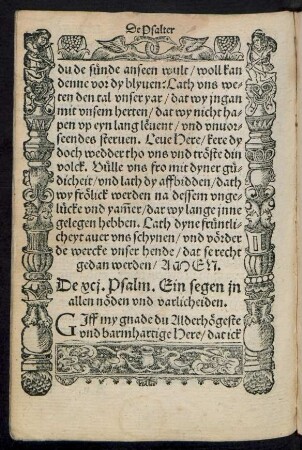 De Psalter
du de sünde anseen wult / woll kan
denne vor dy blyuen: Lath vns we-
ten den tal vnser yar / dat wy jngan
mit vnsem herten / dat wy nicht ha-
pen vp eyn lang leuent / vnd vnuor-
seendes steruen. Leue Here / kere dy
doch wedder tho vns vnd tröste din
volck. Vülle vns fro mit dyner gü-
dicheit / vnd lath dy affbidden / dath
wy frölick werden na dessem vnge-
lücke vnd yamer / dar wy lange jnne
gelegen hebben. Lath dyne früntli-
cheyt auer vns schynen / vnd vörder
de wercke vnser hende / dat se recht
gedan werden / AMEN.
De xcj. Psalm. Ein segen jn
allen nöden vnd varlicheiden.
Giff my gnade du Alderhögeste
vnd barmhartige Here / dat ick